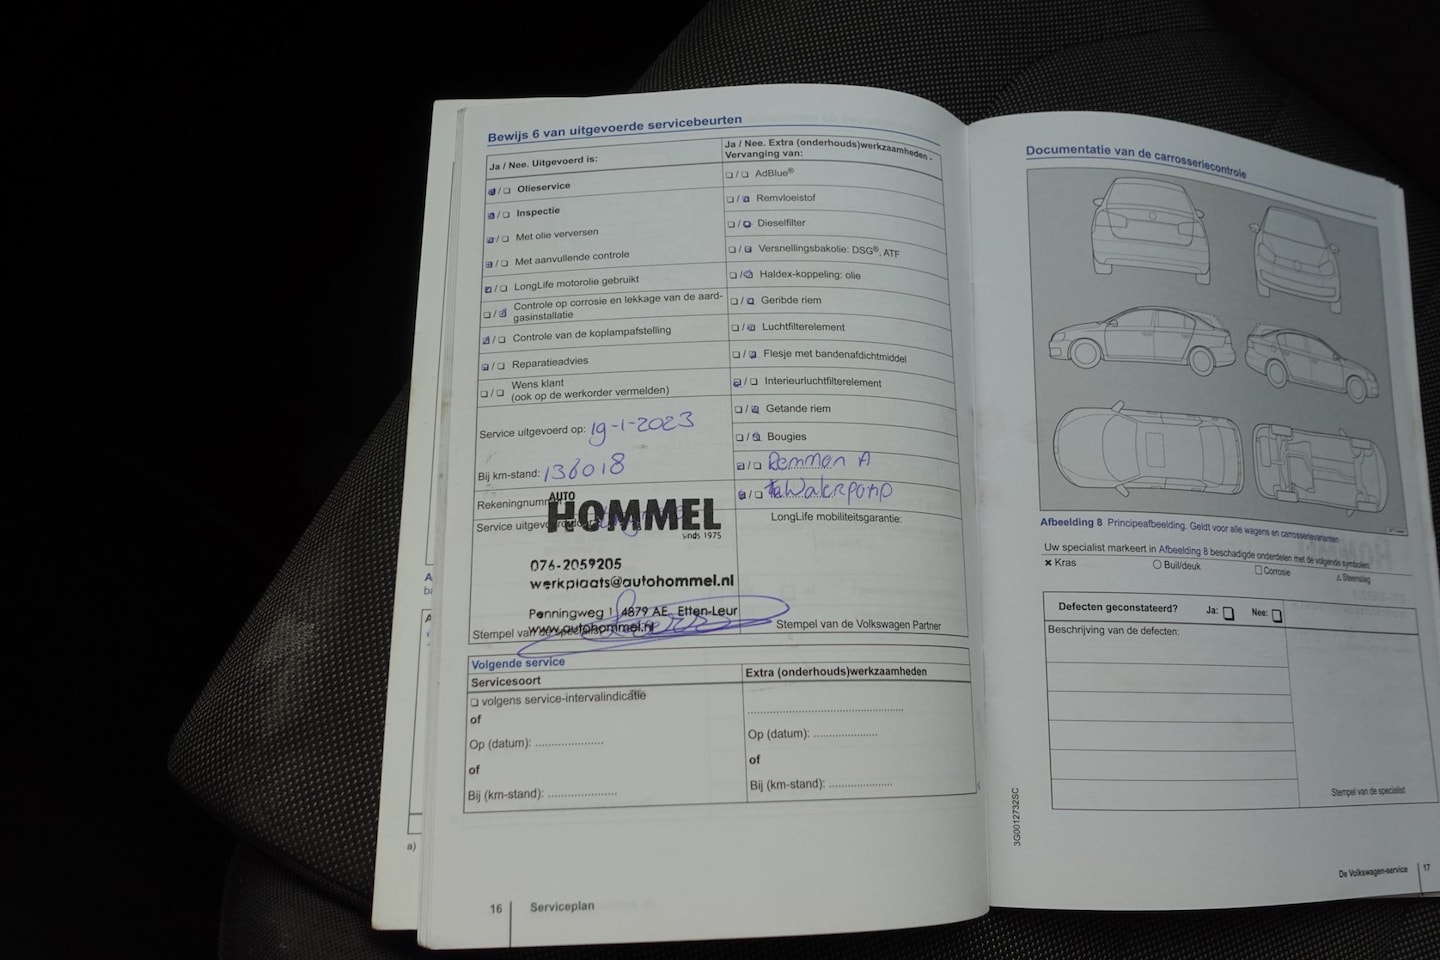 Bewijs 6 van uitgevoerde servicebeurten
Ja / Nee. Uitgevoerd is:
Olieservice
Inspectie
Met olie verversen
Met aanvullende controle
LongLife motorolie gebruikt
Controle op corrosie en lekkage van de aard-
gasinstallatie
Controle van de koplampafstelling
Reparatieadvies
Wens klant
(ook op de werkorder vermelden)
Service uitgevoerd op: 19-1-2023
Bij km-stand: 136018
Rekeningnum
Service uitgevo
AUTO
HOMMEL
sinds 1975
076-2059205
werkplaats@autohommel.nl
Penningweg 1 4879 AE Etten-Leur
www.autohommel.nl
Stempel van de
Ja / Nee. Extra (onderhouds)werkzaamheden -
Vervanging van:
AdBlue®
Remvloeistof
Dieselfilter
Versnellingsbakolie: DSG®, ATF
Haldex-koppeling: olie
Geribde riem
Luchtfilterelement
Flesje met bandenafdichtmiddel
Interieurluchtfilterelement
Getande riem
Bougies
Remmen A
Waterpomp
LongLife mobiliteitsgarantie:
Stempel van de Volkswagen Partner
Volgende service
Servicesoort
volgens service-intervalindicatie
of
Op (datum): ....................
of
Bij (km-stand): ....................
Extra (onderhouds)werkzaamheden
Op (datum): ....................
of
Bij (km-stand): ....................
16 Serviceplan
Documentatie van de carrosseriecontrole
Afbeelding 8 Principeafbeelding. Geldt voor alle wagens en carrosserievarianten
Uw specialist markeert in Afbeelding 8 beschadigde onderdelen met de volgende symbolen:
× Kras
Buil/deuk
Corrosie
Steenslag
Defecten geconstateerd? Ja: Nee:
Beschrijving van de defecten:
Stempel van de specialist
3G0012732SC
De Volkswagen-service 17
a)